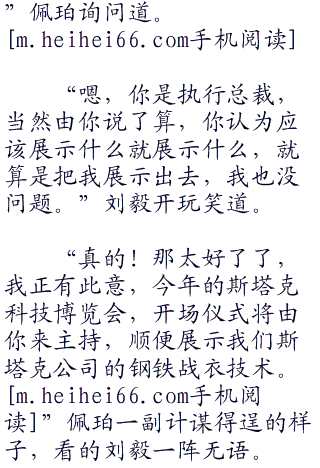 ”佩珀询问道。
[m.heihei66.com手机阅读]
“嗯，你是执行总裁，
当然由你说了算，你认为应
该展示什么就展示什么，就
算是把我展示出去，我也没
问题。”刘毅开玩笑道。
“真的！那太好了了，
我正有此意，今年的斯塔克
科技博览会，开场仪式将由
你来主持，顺便展示我们斯
塔克公司的钢铁战衣技术。
[m.heihei66.com手机阅
读]”佩珀一副计谋得逞的样
子，看的刘毅一阵无语。